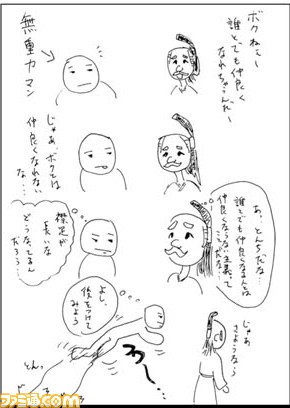 ボクねぇ〜
誰とでも仲良く
なれちゃうんだ〜
無重力マン
じゃあ、ボクとは
仲良くなれない
な…
あ、とんちだな…
誰とでも仲良くなる人とは
仲良くならない主義って
ことだな…
襟足が
長いな
どうなってるん
だろう…
じゃあ
さようなら
よし、
後をつけて
みよう
とん。
ファミ通.com